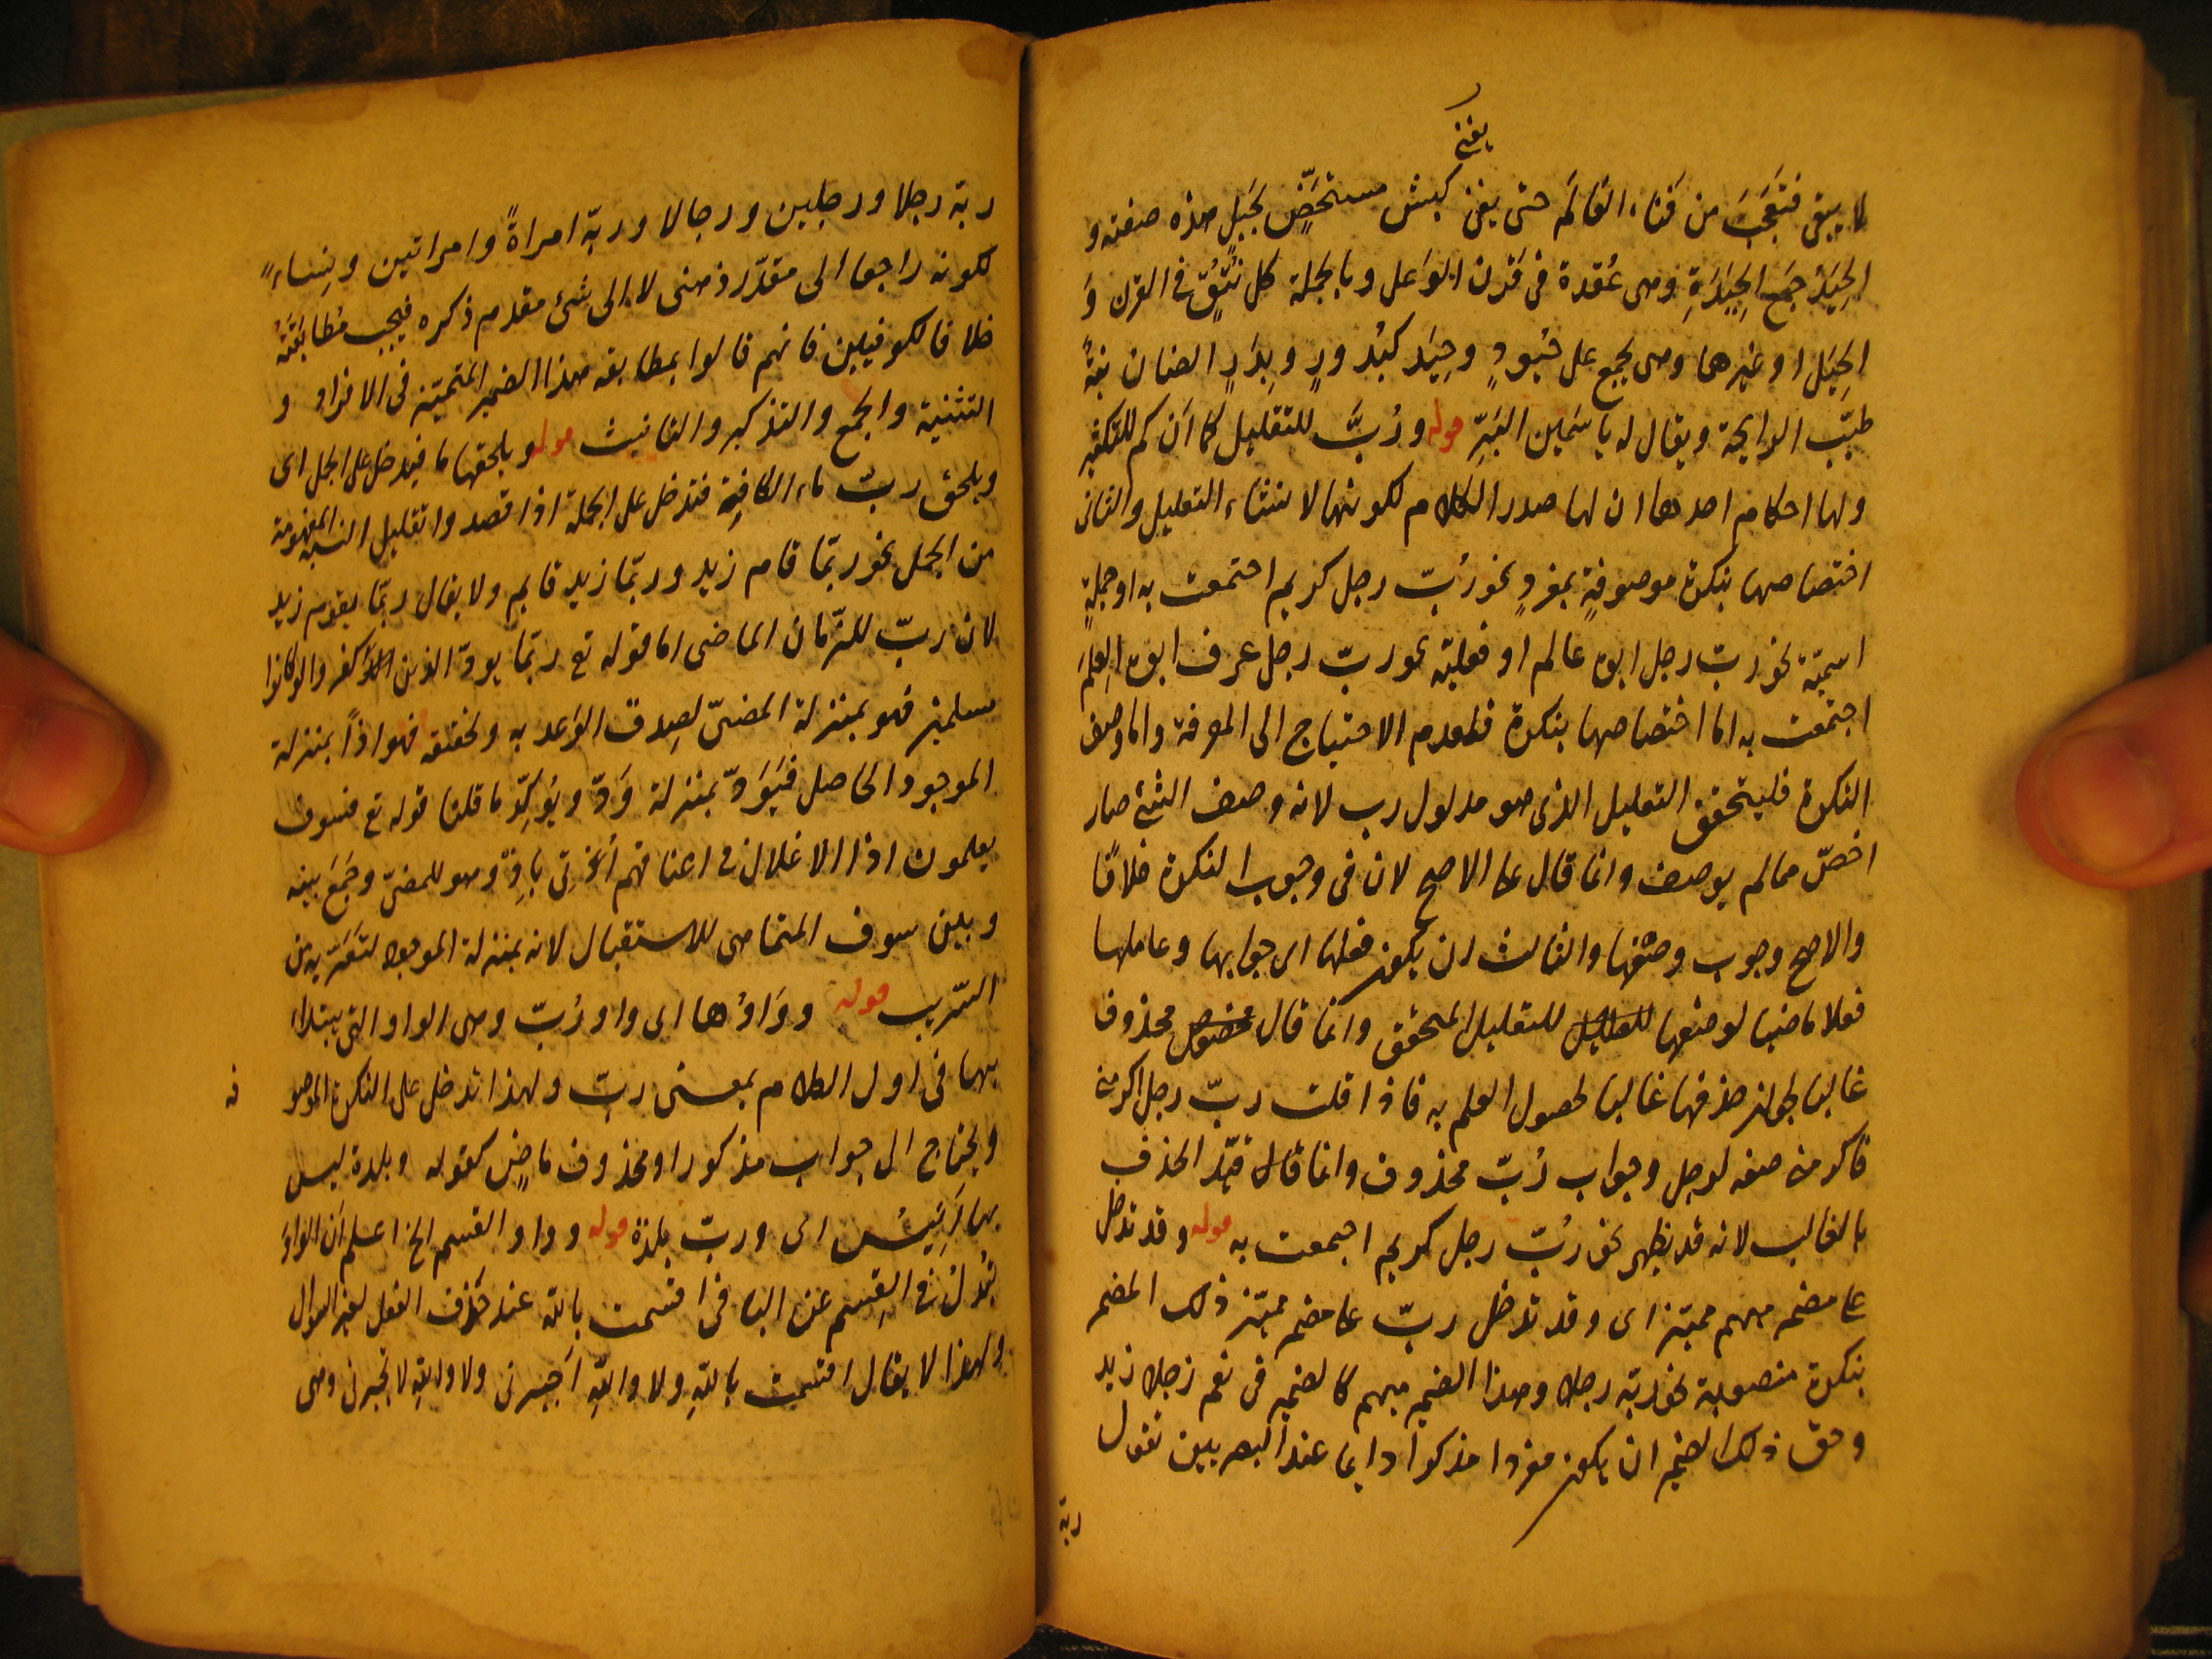 يفنى
لا يبقى فتعجب من فناء العالم حتى يفنى كبش مستحضّ بجبل هذه صفته و
الحِيَدُ جمع الحِيَدَةِ وهى عُقدة فى قَرن الوَعل وبالجملة كل نُتُوّ فى القرن وَ
الجبل او غيرها وهى يجمع على حُيُودٍ وحِيَد كبُدورٍ وبِدَرٍ الضيان نبتٌ
طيّب الرايحة ويقال له ياسَمين البَرِّ قوله ورُبَّ للتقليل كما اَن كم للتكثير
ولها احكام احدها ان لها صدر الكلام لكونها لانشاء التقليل والثانى
اختصاصها بنكرة موصوفةٍ بمفردٍ نحو رُبّ رجل كريم اجتمعت به او جملةٍ
اسميّة نحو ربّ رجل ابوه عالم او فعلية نحو ربّ رجل عرف ابوه العِلمَ
اجتمعت به اما اختصاصها بنكرة فلعدم الاحتياج الى المعرفة واما وصف
النكرة فليتحقق التقليل الذى هو مدلول رب لانه وصف الشئ صار
اخصّ مما لم يوصف وانما قال على الاصح لان فى وجوب النكرة خلافًا
والاصح وجوب وصفها والثالث ان يكون فعلها اى جوابها وعاملها
فعلا ماضيا لوضعها للتقليل المحقق وانما قال محذوف
غالبا لجواز حذفها غالبا لحصول العلم به فاذا قلت ربّ رجل اكرمنى
فاكرمنى صفه لرجل وجواب رُبّ محذوف وانما قال قيّد الحذف
بالغالب لانه قد يظهر نحو رُبّ رجل كريم اجمعت به قوله وقد تدخل
على مضمر مبهم مميّز اى وقد تدخل ربّ على مضمر مميّز ذلك المضمر
بنكرة منصوبة نحو ربّه رجلا وهذا الضمير مبهم كالضمير فى نعم رجلا زيد
وحق ذلك الضمير ان يكون مفردا مذكرا دايما عند البصريين تقول
ربّه
ربّه رجلا ورجلين ورجالا وربّه امراةً وامراتين ونِساءً
لكونه راجعا الى مقدّر ذهنى لا الى شئ مقدم ذكره فيجب مُطابَقَتُه
خلافا لكوفيين فانهم قالوا بمطابقه هذا الضمير المتميّز فى الافراد و
التثنية والجمع والتذكير والتانيث قوله ويلحقها ما فيدخل على الجمل اى
ويلحق ربّ ماء الكافِية فتدخل على الجملة اذا قصدوا تقليل النسبه المفهومة
من الجمل نحو ربّما قام زيد وربّما زيد قايم ولا يقال ربّما يقوم زيد
لان ربّ للزّمان الماضى اما قوله تع ربّما يودّ الذين كفروا لو كانوا
مسلمين فهو بمنزلة المضىّ لصِدق الوَعد به وتحققه فهو اذاً بمنزلة
الموجود الحاصل فيَوَدّ بمنزلة وَدّ ويُوكِّد ما قلنا قوله تع فسوف
يعلمون اذا الاغلال فى اعناقهم اُتى باِذْ وهو للمضىّ وجَمَعَ بينه
وبين سوف المتماهى للاستقبال لانه بمنزلة الموجود لتَقَرّبه من
القريب قوله ووَاوُها اى واو رُبّ وهى الواو التى يبتداء
بها فى اول الكلام بمعنى ربّ ولهذا تدخل على النكرة الموصو
فه
ويحتاج الى جواب مذكور او محذوف ماضٍ كقوله وبلدة ليس
بها اَنِيسٌ اى وربّ بلدة قوله وواو القسم الخ اعلم اَن الواوَ
تُبدَلُ فى القِسم عن الباء فى اقسمت بالله عند حَذف الفعل لغير السوال
ولهذا لا يقال اقسمت باللهِ ولا واللهِ اَجِبرنى ولا واللهِ لا تجبرنى وهى